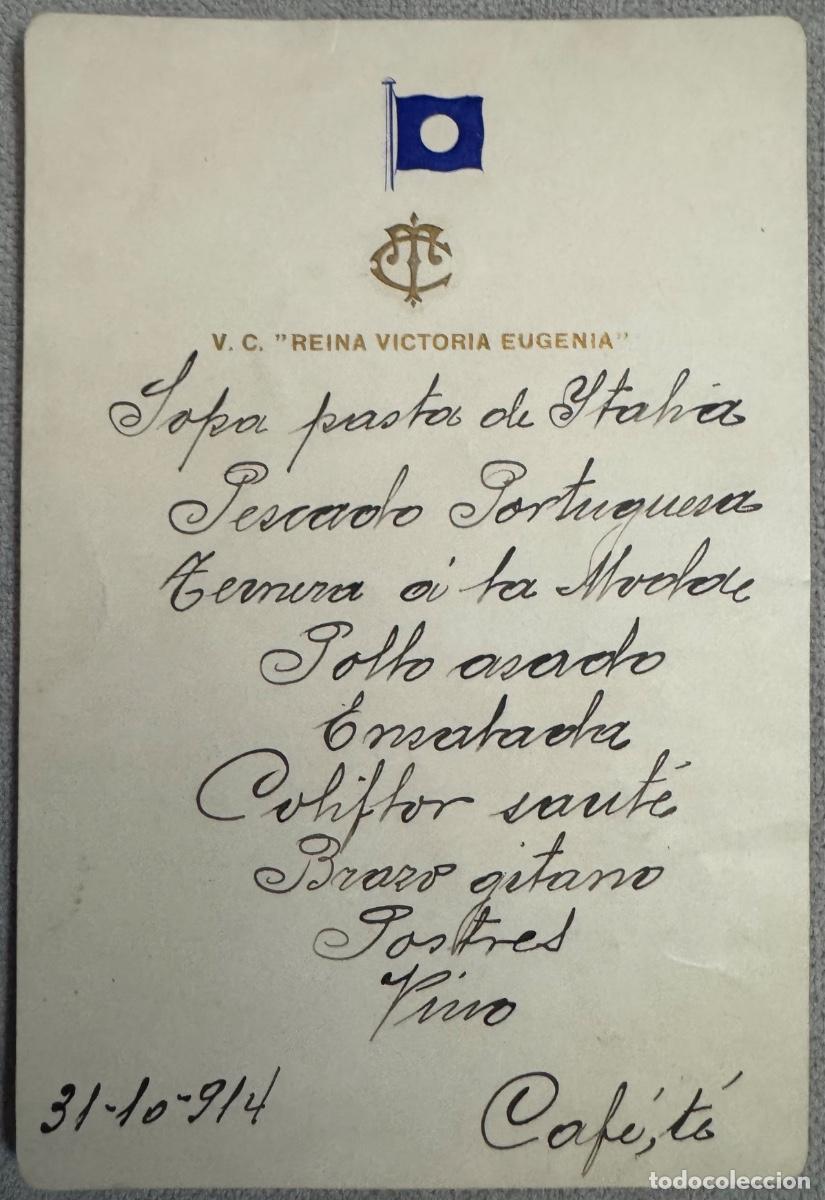 V. C. "REINA VICTORIA EUGENIA"
Sopa pasta de Ytalia
Pescado Portuguesa
Ternera á la Modde
Pollo asado
Ensalada
Coliflor sauté
Brazo gitano
Postres
Vino
31-10-914
Café, té
todocoleccion